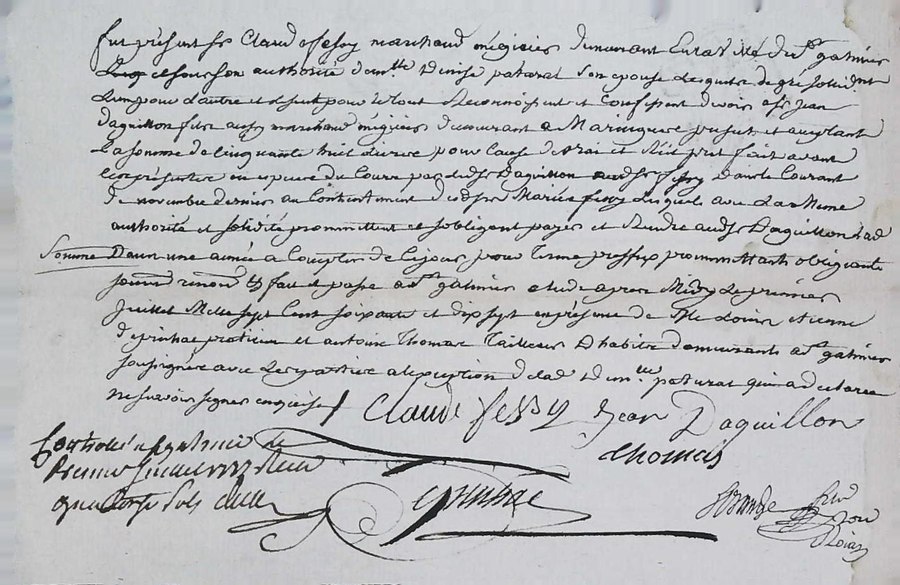 fut présent sr Claude fessy marchand mégicier demeurant en la ville de st galmier
lequel de son authorité d'elle Denise paturat son epouse lesquels de gré solidt
l'un pour l'autre et seul pour le tout Reconnoissent et confessent devoir a sr Jean
Daguillon fils aussy marchand mégicier demeurant a Maringue present et acceptant
La somme de Cinquante huit livres pour Cause de vrai et Réel prêt fait avant
les présentes en espèces du Cours par ledt sr Daguillon audt sr fessy dans le Courant
de novembre dernier au Contentement desdts Mariés fessy Lesquels avec La même
authorité et solidité promettent et s'obligent payer et Rendre audt sr Daguillon lad
somme Dans une année a Compter de Ce jour pour terme preffix promettants obligeants
renon fait et passé a st galmier etude apres Midy Le premier
juillet Mille sept Cent soixante et dix sept en présence de Me Louis etienne
depinhac praticien et antoine Thomas Tailleur D'habits demeurants a st galmier
soussignés avec Les parties a l'exception de lad De paturat qui a declaré
ne savoir signer enquise
Claude fessy Jean Daguillon
Thomas
Controllé a st galmier le
Premier juillet 1777 Reçu
quatorze sols